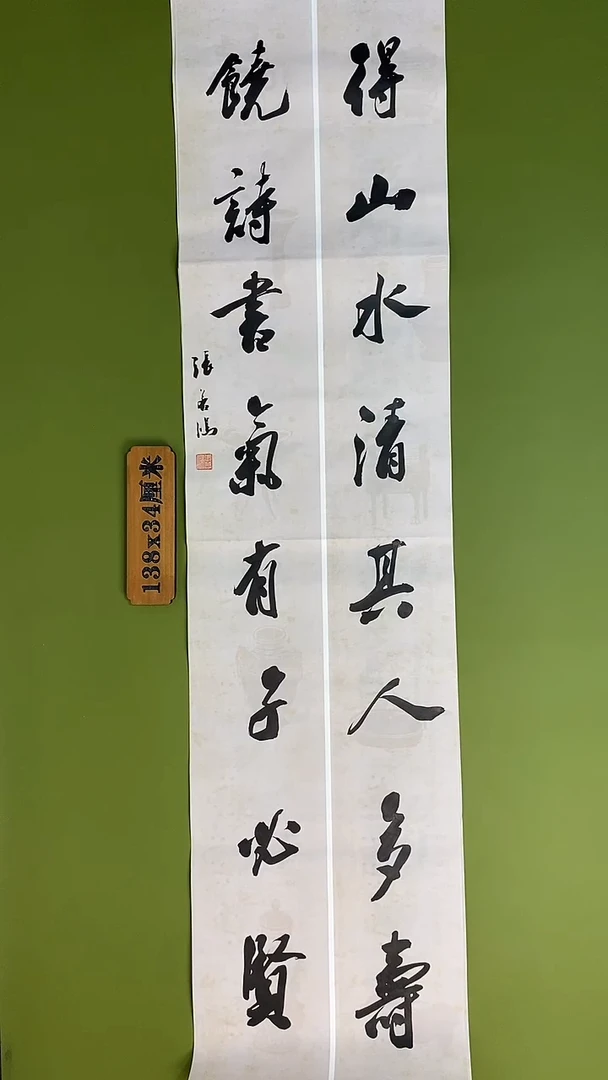 得山水清其人多壽
饒詩書氣有子必賢
張善鴻
138x34厘米